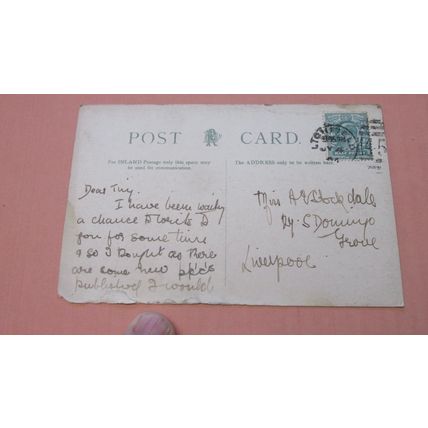 POST CARD.
For INLAND Postage only this space may
be used for communication.
The ADDRESS only to be written here.
Dear Tiny.
I have been waiting
a chance to write to
you for some time
& so I thought as there
are some new ppc's
published I would
Miss A E Stockdale
S Domingo
Grove
Liverpool.